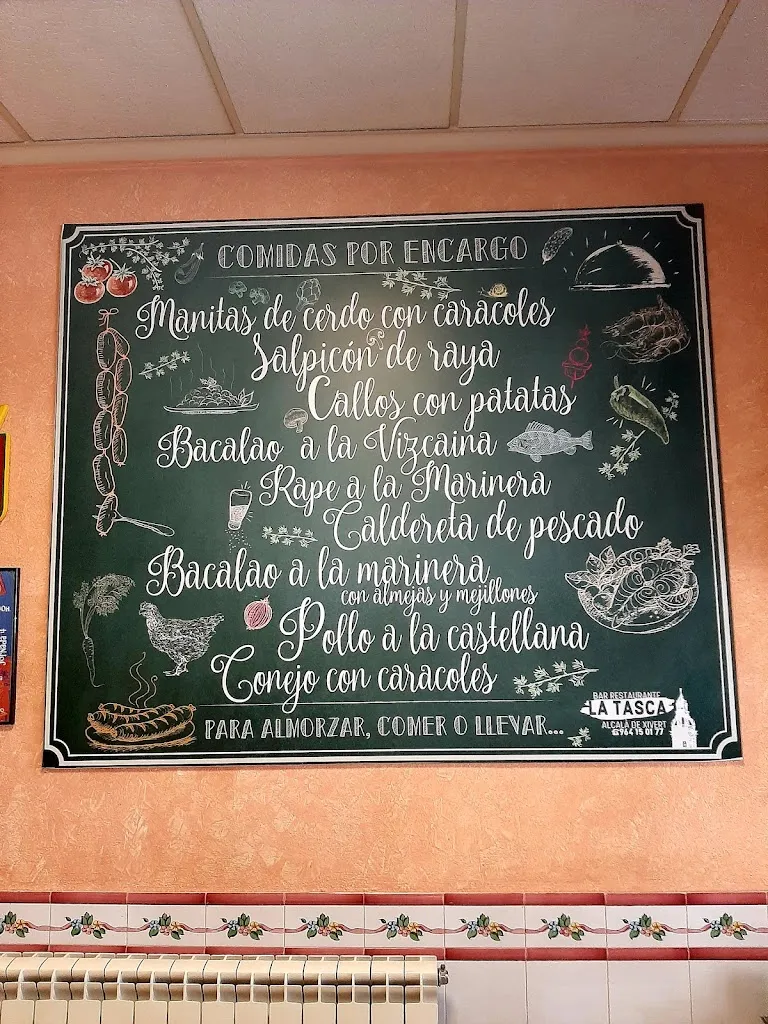 COMIDAS POR ENCARGO
Manitas de cerdo con caracoles
Salpicón de raya
Callos con patatas
Bacalao a la Vizcaina
Rape a la Marinera
Caldereta de pescado
Bacalao a la marinera
con almejas y mejillones
Pollo a la castellana
Conejo con caracoles
PARA ALMORZAR, COMER O LLEVAR...
BAR RESTAURANTE
LA TASCA
ALCALÀ DE XIVERT
964 15 01 77